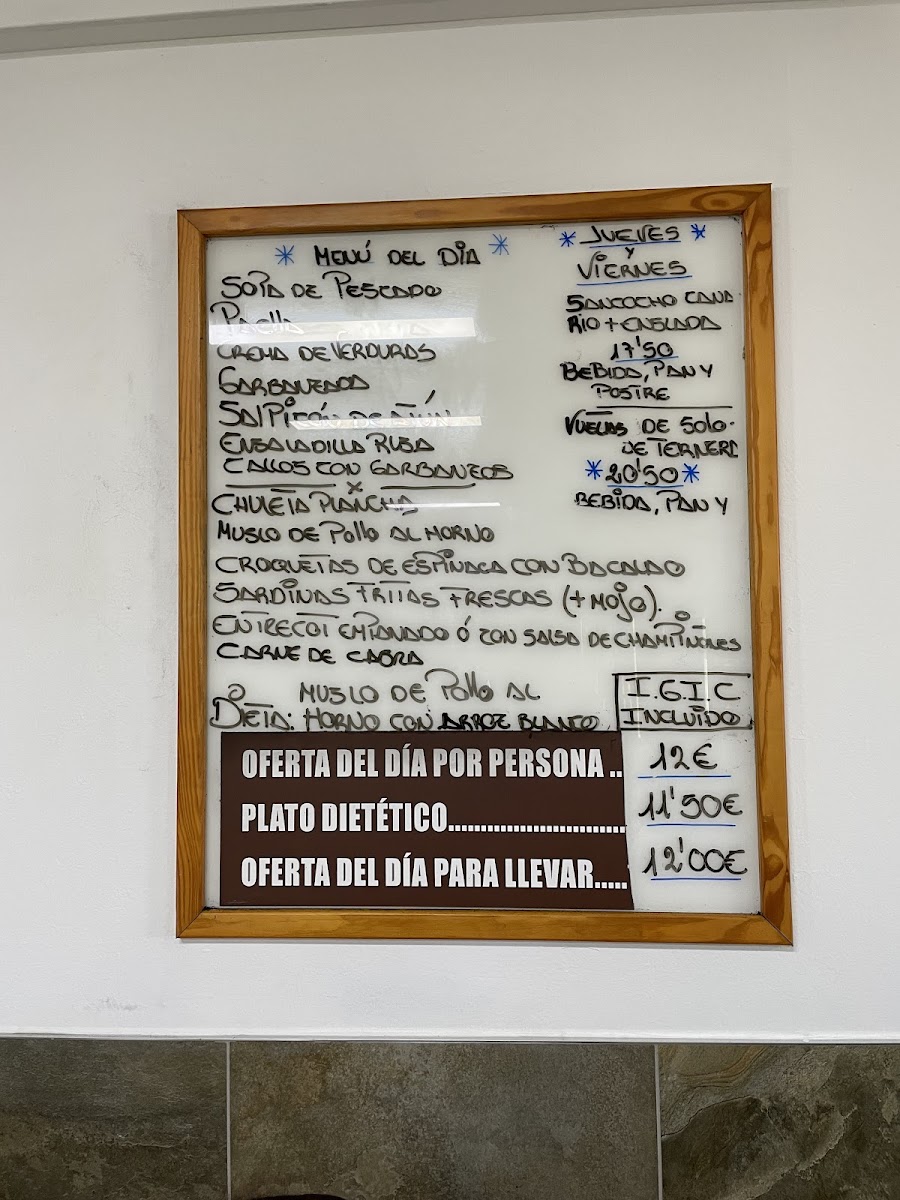 * MENÚ DEL DIA *
SOPA DE PESCADO
PAELLA
CREMA DE VERDURAS
GARBANZADA
SALPICÓN DE ATÚN
ENSALADILLA RUSA
CALLOS CON GARBANZOS
x
CHULETA PLANCHA
MUSLO DE POLLO AL HORNO
CROQUETAS DE ESPINACA CON BACALAO
SARDINAS FRITAS FRESCAS (+MOJO).
ENTRECOT EMPANADO Ó CON SALSA DE CHAMPIÑONES
CARNE DE CABRA
MUSLO DE POLLO AL
DIETA: HORNO CON ARROZ BLANCO
* JUEVES *
Y
VIERNES
SANCOCHO CANA
RIO + ENSLADA
17'50
BEBIDA, PAN Y
POSTRE
VUELTAS DE SOLO-
DE TERNERA
*20'50*
BEBIDA, PAN Y
I.G.I.C
INCLUÍDO
OFERTA DEL DÍA POR PERSONA .. 12€
PLATO DIETÉTICO........................... 11'50€
OFERTA DEL DÍA PARA LLEVAR..... 12'00€